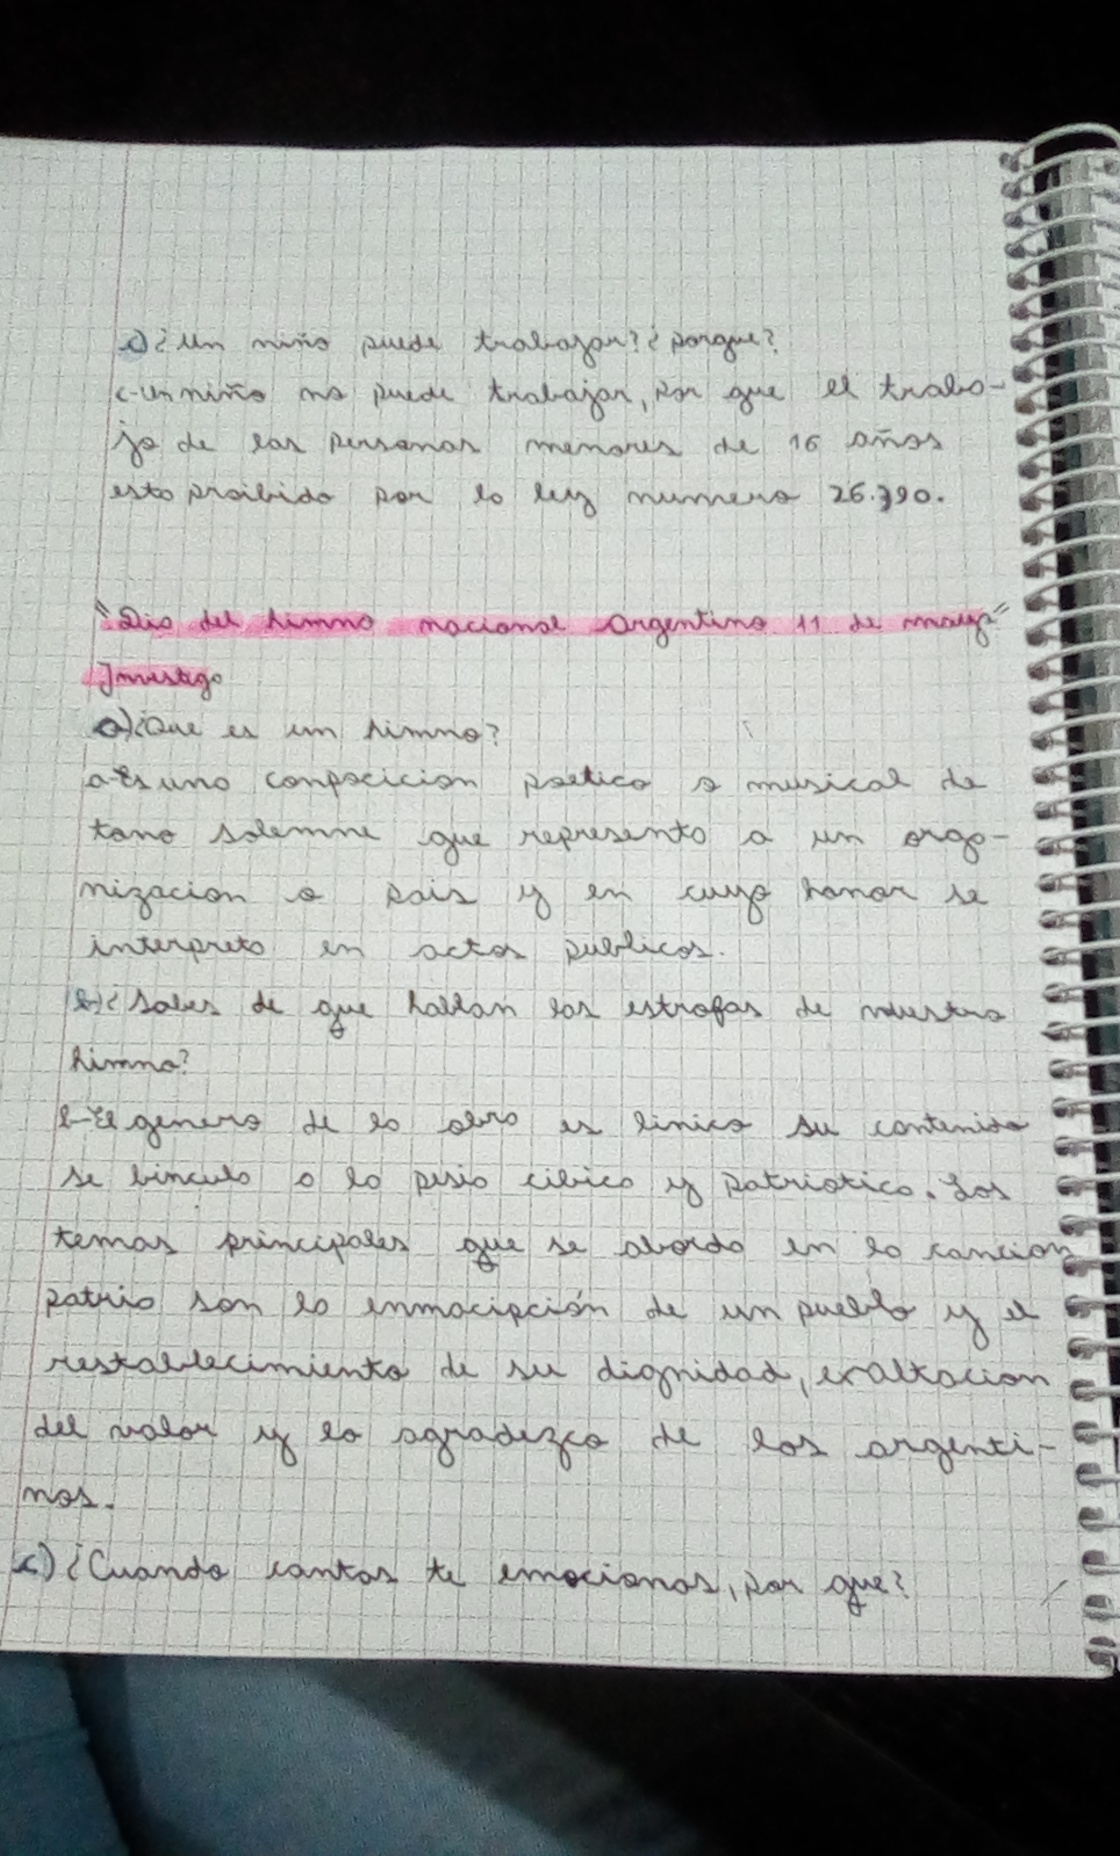 c)¿Un niño puede trabajar?¿porque?
c-Un niño no puede trabajar, por que el traba-
jo de las personas menores de 16 años
esta proibido por la ley numero 26.390.
"Dia del himno nacional Argentino 11 de mayo"
Investigo
a)¿Que es un himno?
a-Es una conpocicion poetica o musical de
tono solemne que representa a un orga-
nizacion o pais y en cuyo honor se
interpreta en actos publicos.
b)¿Sabes de que hablan las estrofas de nuestro
himno?
b-El genero de la obra es linico su contenido
se bincula a la pesia cibica y patriotica. Los
temas principales que se aborda en la cancion
patria son la enmacipción de un pueblo y el
restablecimiento de su dignidad, exaltacion
del valor y la agradezca de los argenti-
nos.
c)¿Cuando cantas te emocionas, por que?